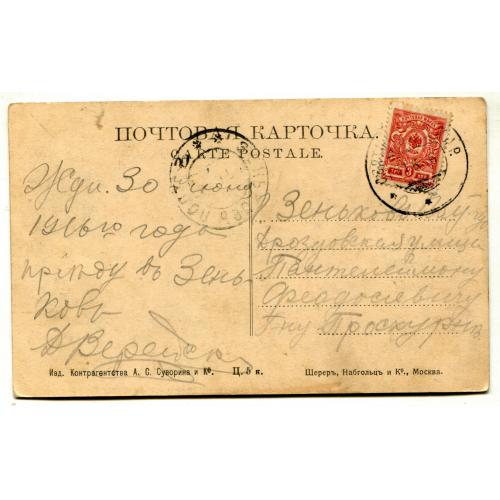 ПОЧТОВАЯ КАРТОЧКА.
CARTE POSTALE.
Жди 30 июня
1916го года
приѣду въ Зень
ковъ
Зеньков
Дроздовская улица
Пантелеймону
Феодосіевичу
Г-ну Проскурня
Изд. Контрагентства А. С. Суворина и Ко. Ц. 5 к.
Шереръ, Набгольцъ и Ко., Москва.